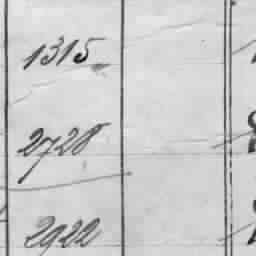 1315
2728
2922